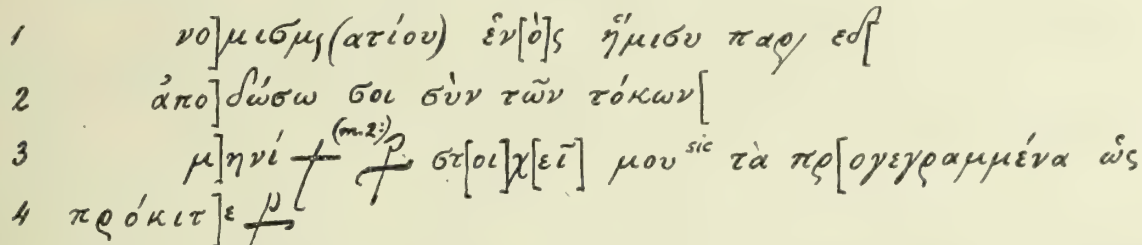 1 νο]μισμ(ατίου) ἑν[ὸ]ς ἥμισυ παρ/ εδ[
2 ἀπο]δώσω σοι σὺν τῶν τόκων[
3 μ]ηνί + (m.2:) ⳨ στ[οι]χ[εῖ] μου sic τὰ πρ[ογεγραμμένα ὡς
4 πρόκιτ]ε ⳨